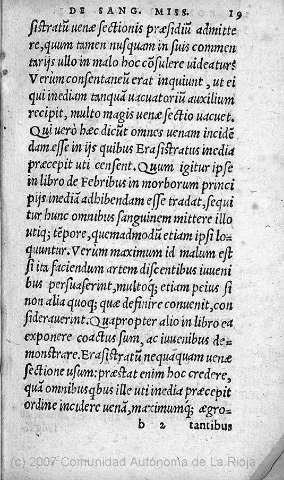 DE SANG. MISS. 19
sistratũ venæ sectionis præsidiũ admitte
re, quum tamen nusquam in suis commen
tarijs ullo in malo hoc cõsulere videatur?
Verùm consentaneũ erat inquiunt, ut ei
qui inediam tanquã vacuatoriũ auxilium
recipit, multo magis venæ sectio vacuet.
Qui verò hæc dicũt omnes venam incidẽ
dam esse in ijs quibus Erasistratus inedia
præcepit uti censent. Quum igitur ipse
in libro de Febribus in morborum princi
pijs inediã adhibendam esse tradat, sequi
tur hunc omnibus sanguinem mittere illo
utiq; tẽpore, quemadmodũ etiam ipsi lo-
quuntur. Verum maximum id malum est
si ita faciendum artem discentibus iuueni
bus persuaserint, multoq; etiam peius si
non alia quoq; quæ definire conuenit, con
siderauerint. Quapropter alio in libro ea
exponere coactus sum, ac iuuenibus de-
monstrare. Erasistratũ nequaquam venæ
sectione usum: præstat enim hoc credere,
quã omnibus qbus ille uti inedia præcepit
ordine incidere venã, maximumq; ægro-
b 2 tantibus
(c) 2007 Comunidad Autónoma de La Rioja